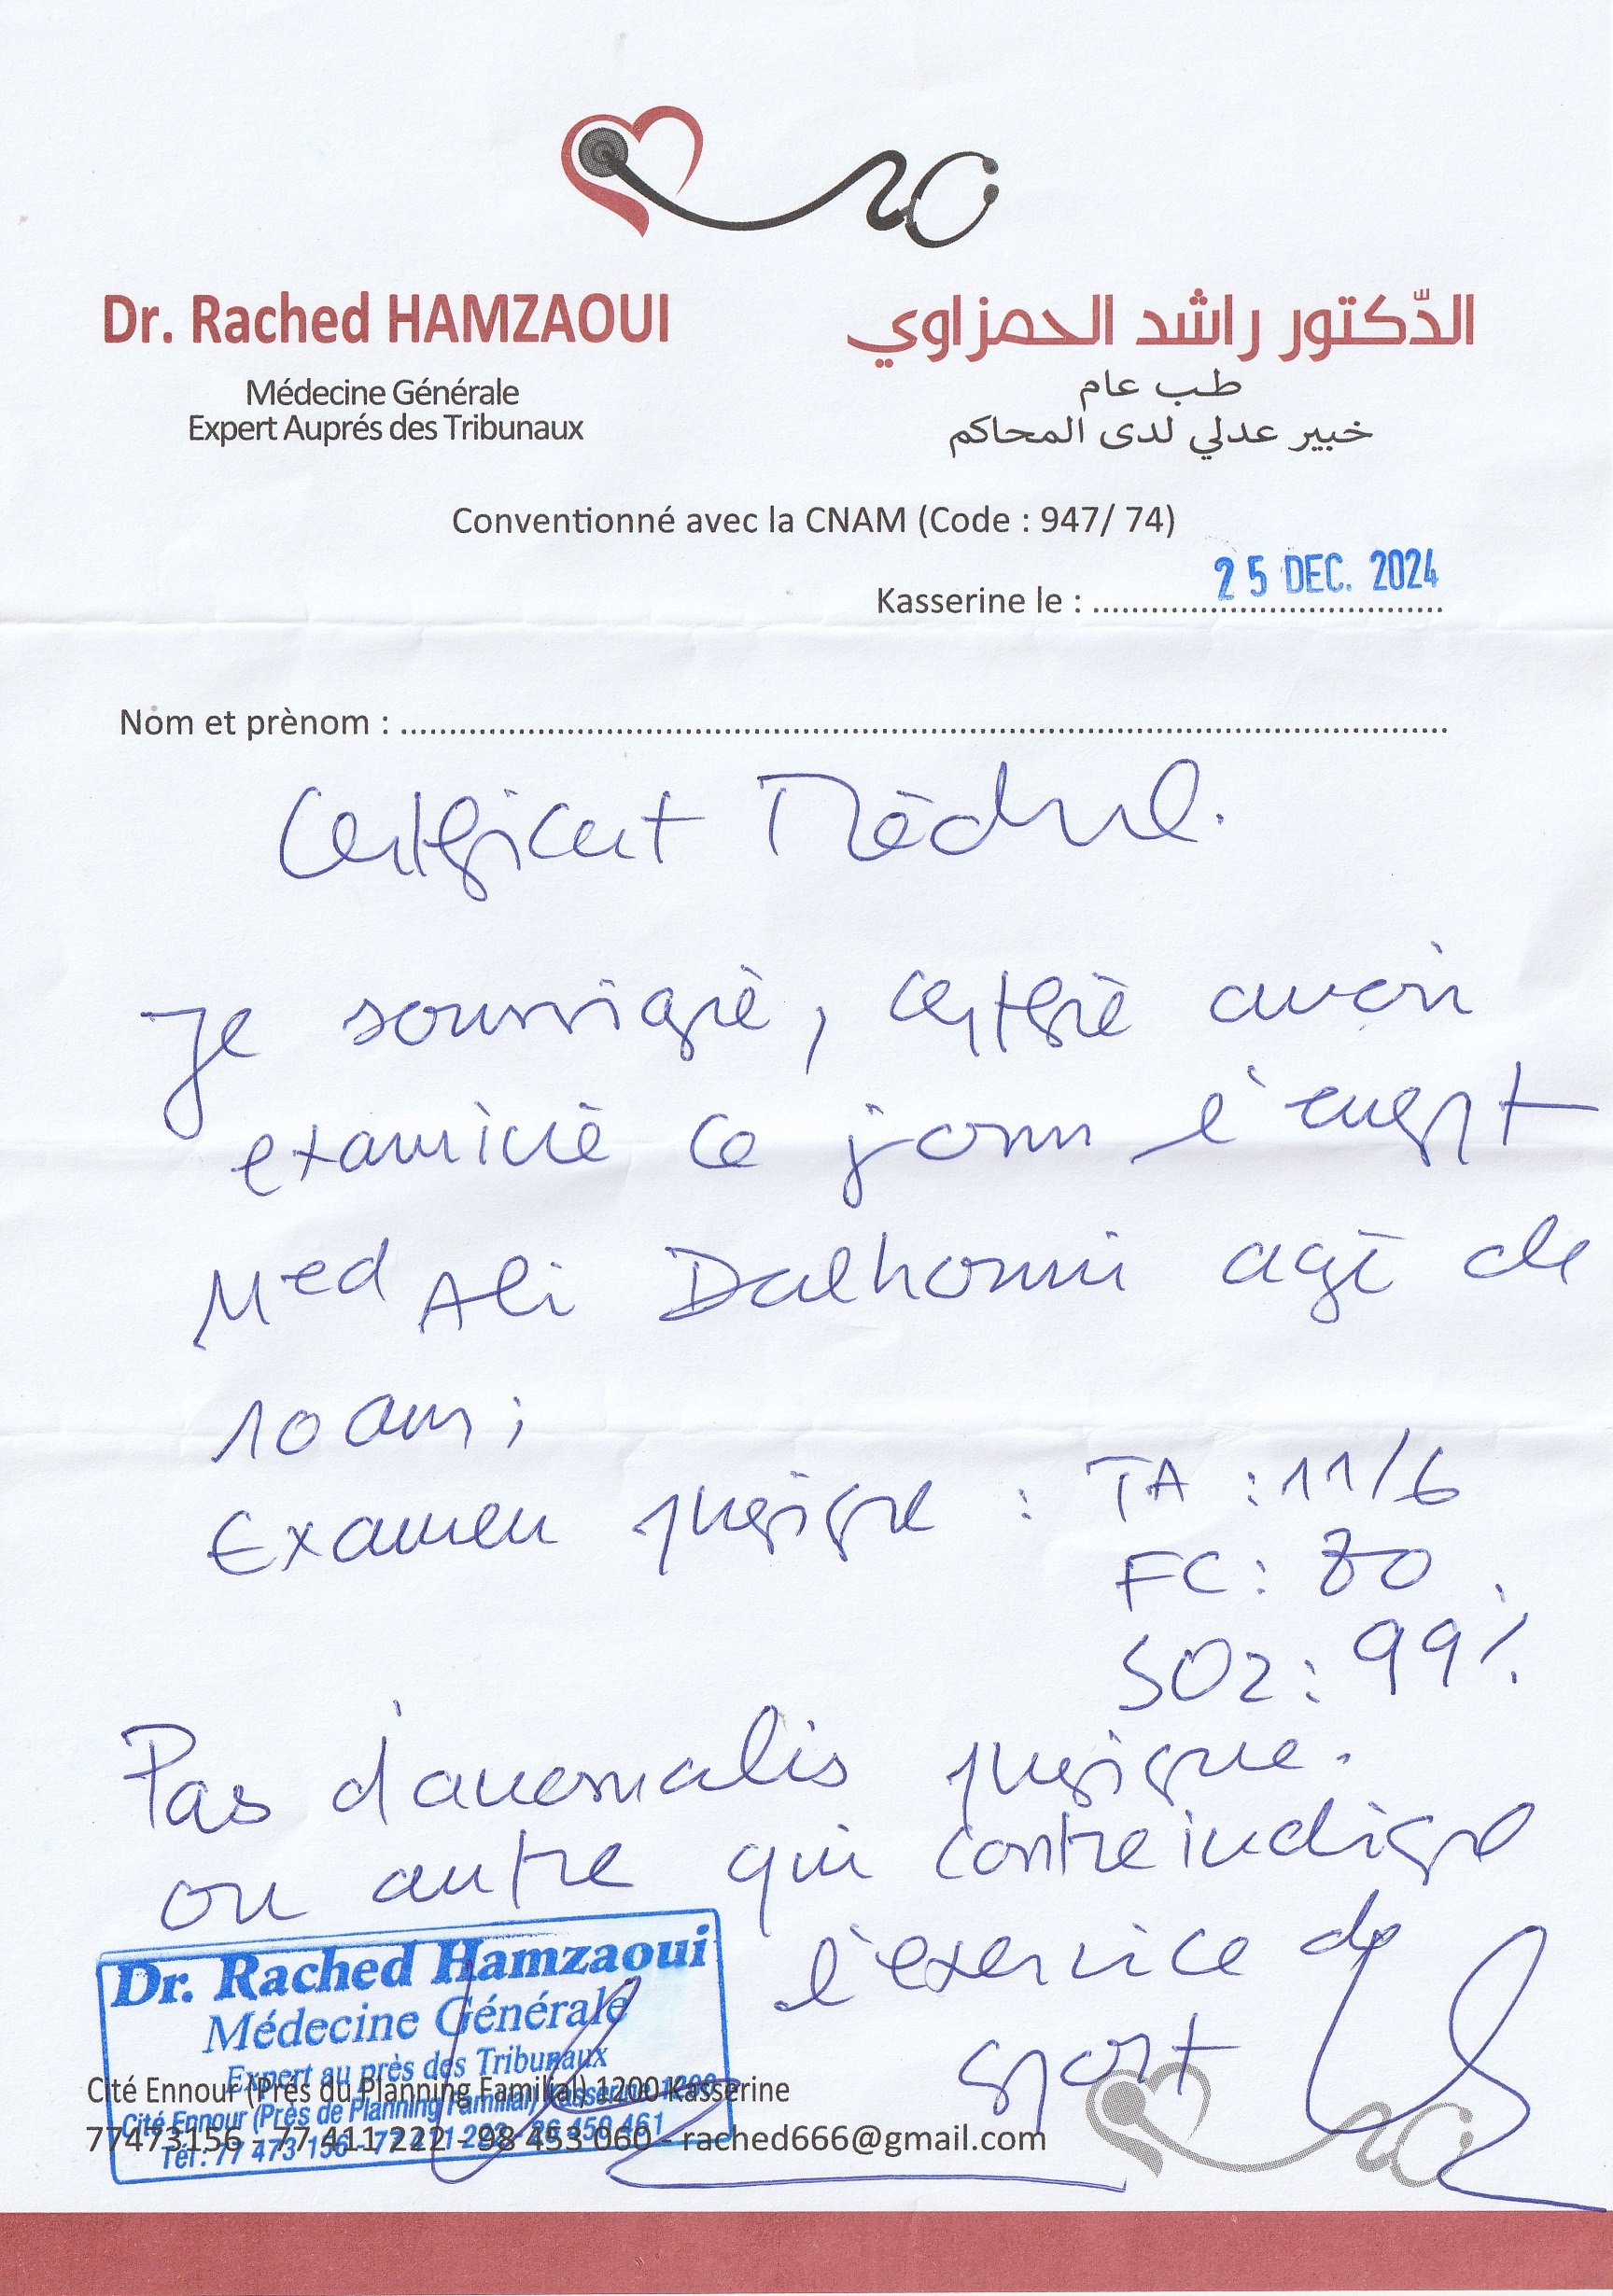 Dr. Rached HAMZAOUI
Médecine Générale
Expert Auprés des Tribunaux
الدّكتور راشد الحمزاوي
طب عام
خبير عدلي لدى المحاكم
Conventionné avec la CNAM (Code : 947/ 74)
Kasserine le : 25 DEC. 2024
Nom et prènom :
Certificat Médical.
Je soussigné, certifie avoir
examiné ce jour l'enfant
Med Ali Dalhoumi agé de
10 ans ;
Examen physique : TA : 11/6
FC : 80
SO2 : 99%
Pas d'anomalis physique.
ou autre qui contreindique
l'exervice de
sport
Dr. Rached Hamzaoui
Médecine Générale
Expert au près des Tribunaux
Cité Ennour (Près de Planning Familial) Kasserine 1200
Tél : 77 473 156 - 77 411 222 - 26 450 461
Cité Ennour (Prés du Planning Familial) 1200 Kasserine
77473156 - 77 411 222 - 98 453 060 - rached666@gmail.com